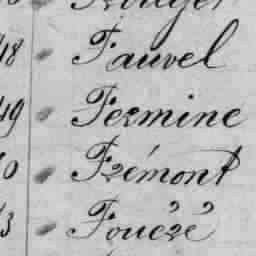 48 Fauvel
49 Fermine
0 Frémont
3 Fouéré